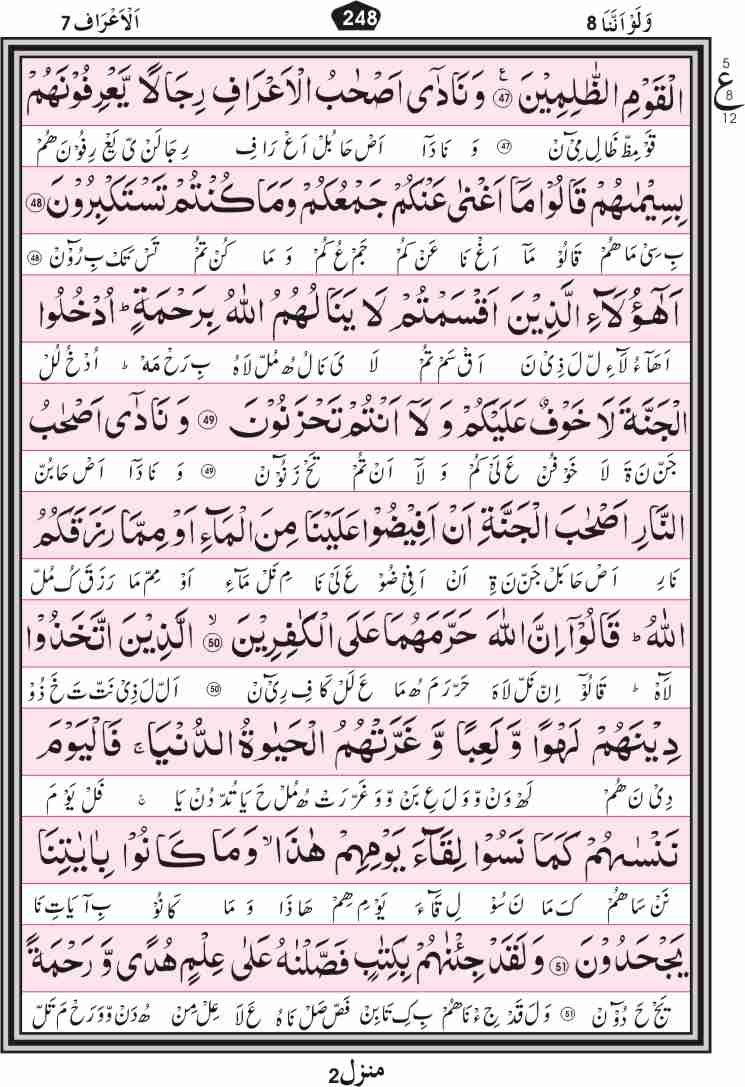 وَلَوْ اَنَّنَا 8 248 اَلْاَعْرَاف 7
الْقَوْمِ الظّٰلِمِيْنَ ۧ ﴿47﴾ وَنَادٰٓى اَصْحٰبُ الْاَعْرَافِ رِجَالًا يَّعْرِفُوْنَهُمْ
5 ع 8 12
قَوْ مِظّ ظَا لِ مِىْٓ نْ 47 وَ نَا دَ آ اَصْ حَا بُلْ اَعْ رَا فِ رِ جَا لَنْ ىّ يَعْ رِ فُوْ نَ هُمْ
بِسِيْمٰىهُمْ قَالُوْا مَاۤ اَغْنٰى عَنْكُمْ جَمْعُكُمْ وَمَا كُنْتُمْ تَسْتَكْبِرُوْنَ ﴿48﴾
بِ سِىْ مَا هُمْ قَا لُوْ مَآ اَغْ نَا عَنْ كُمْ جَمْ عُ كُمْ وَ مَا كُنْ تُمْ تَسْ تَكْ بِ رُوْٓنْ 48
اَهٰۤؤُلَآءِ الَّذِيْنَ اَقْسَمْتُمْ لَا يَنَالُهُمُ اللّٰهُ بِرَحْمَةٍ ؕ اُدْخُلُوا
اَ هَآ ءُ لَآ ءِ لّ لَ ذِىْ نَ اَقْ سَمْ تُمْ لَا ىَ نَا لُ هُ مُلّ لَا هُ بِ رَحْ مَهْ ؕ اُدْ خُ لُلْ
الْجَنَّةَ لَا خَوْفٌ عَلَيْكُمْ وَ لَاۤ اَنْتُمْ تَحْزَنُوْنَ ﴿49﴾ وَ نَادٰٓى اَصْحٰبُ
جَنّ نَ ةَ لَا خَوْ فُنْ عَ لَىْ كُمْ وَ لَآ اَنْ تُمْ تَحْ زَ نُوْٓنْ 49 وَ نَا دَ آ اَصْ حَا بُنّ
النَّارِ اَصْحٰبَ الْجَنَّةِ اَنْ اَفِيْضُوْا عَلَيْنَا مِنَ الْمَآءِ اَوْ مِمَّا رَزَقَكُمُ
نَا رِ اَصْ حَا بَلْ جَنّ نَ ةِ اَنْ اَ فِىْ ضُوْ عَ لَىْ نَا مِ نَلْ مَآ ءِ اَوْ مِمّ مَا رَ زَ قَ كُ مُلّ
اللّٰهُ ؕ قَالُوْۤا اِنَّ اللّٰهَ حَرَّمَهُمَا عَلَى الْكٰفِرِيْنَ ۙ ﴿50﴾ الَّذِيْنَ اتَّخَذُوْا
لَآ هْ ؕ قَا لُوْٓ اِنّ نَلّ لَا هَ حَرّ رَ مَ هُ مَا عَ لَلْ كَا فِ رِىْٓ نْ 50 اَلّ لَ ذِىْ نَتّ تَ خَ ذُوْ
دِيْنَهُمْ لَهْوًا وَّلَعِبًا وَّ غَرَّتْهُمُ الْحَيٰوةُ الدُّنْيَا ۚ فَالْيَوْمَ
دِىْ نَ هُمْ لَهْ وَنْ وّ وَ لَ عِ بَنْ وّ وَ غَرّ رَتْ هُ مُلْ حَ يَا تُدّ دُنْ يَا ۚ فَلْ يَوْ مَ
نَنْسٰىهُمْ كَمَا نَسُوْا لِقَآءَ يَوْمِهِمْ هٰذَا ۙ وَمَا كَانُوْا بِاٰيٰتِنَا
نَنْ سَا هُمْ كَ مَا نَ سُوْ لِ قَآ ءَ يَوْ مِ هِمْ هَا ذَا وَ مَا كَا نُوْ بِ آ يَا تِ نَا
يَجْحَدُوْنَ ﴿51﴾ وَلَقَدْ جِئْنٰهُمْ بِكِتٰبٍ فَصَّلْنٰهُ عَلٰى عِلْمٍ هُدًى وَّ رَحْمَةً
يَجْ حَ دُوْٓ نْ 51 وَ لَ قَدْ جِ ءْ نَا هُمْ بِ كِ تَا بِنْ فَصّ صَلْ نَا هُ عَ لَا عِلْ مِنْ هُ دَنْ وّ وَ رَحْ مَ تَلّ
منزل2